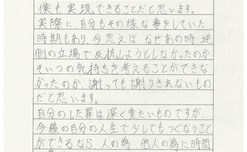 僕も実現できることだと思います。
実際に自分もその様な事をしていた
時期もあり、今思えば なぜあの時 逆
側の立場で反抗しようとしなかったのか
そいつの気持ちを考えることができな
なかったのか、謝っても謝りきれないもの
だと思います。
自分のした罪は深く重たいものですが、
今後の自分の人生で少しでもつくなうこと
ができるなら 人の為 他人の為に時間